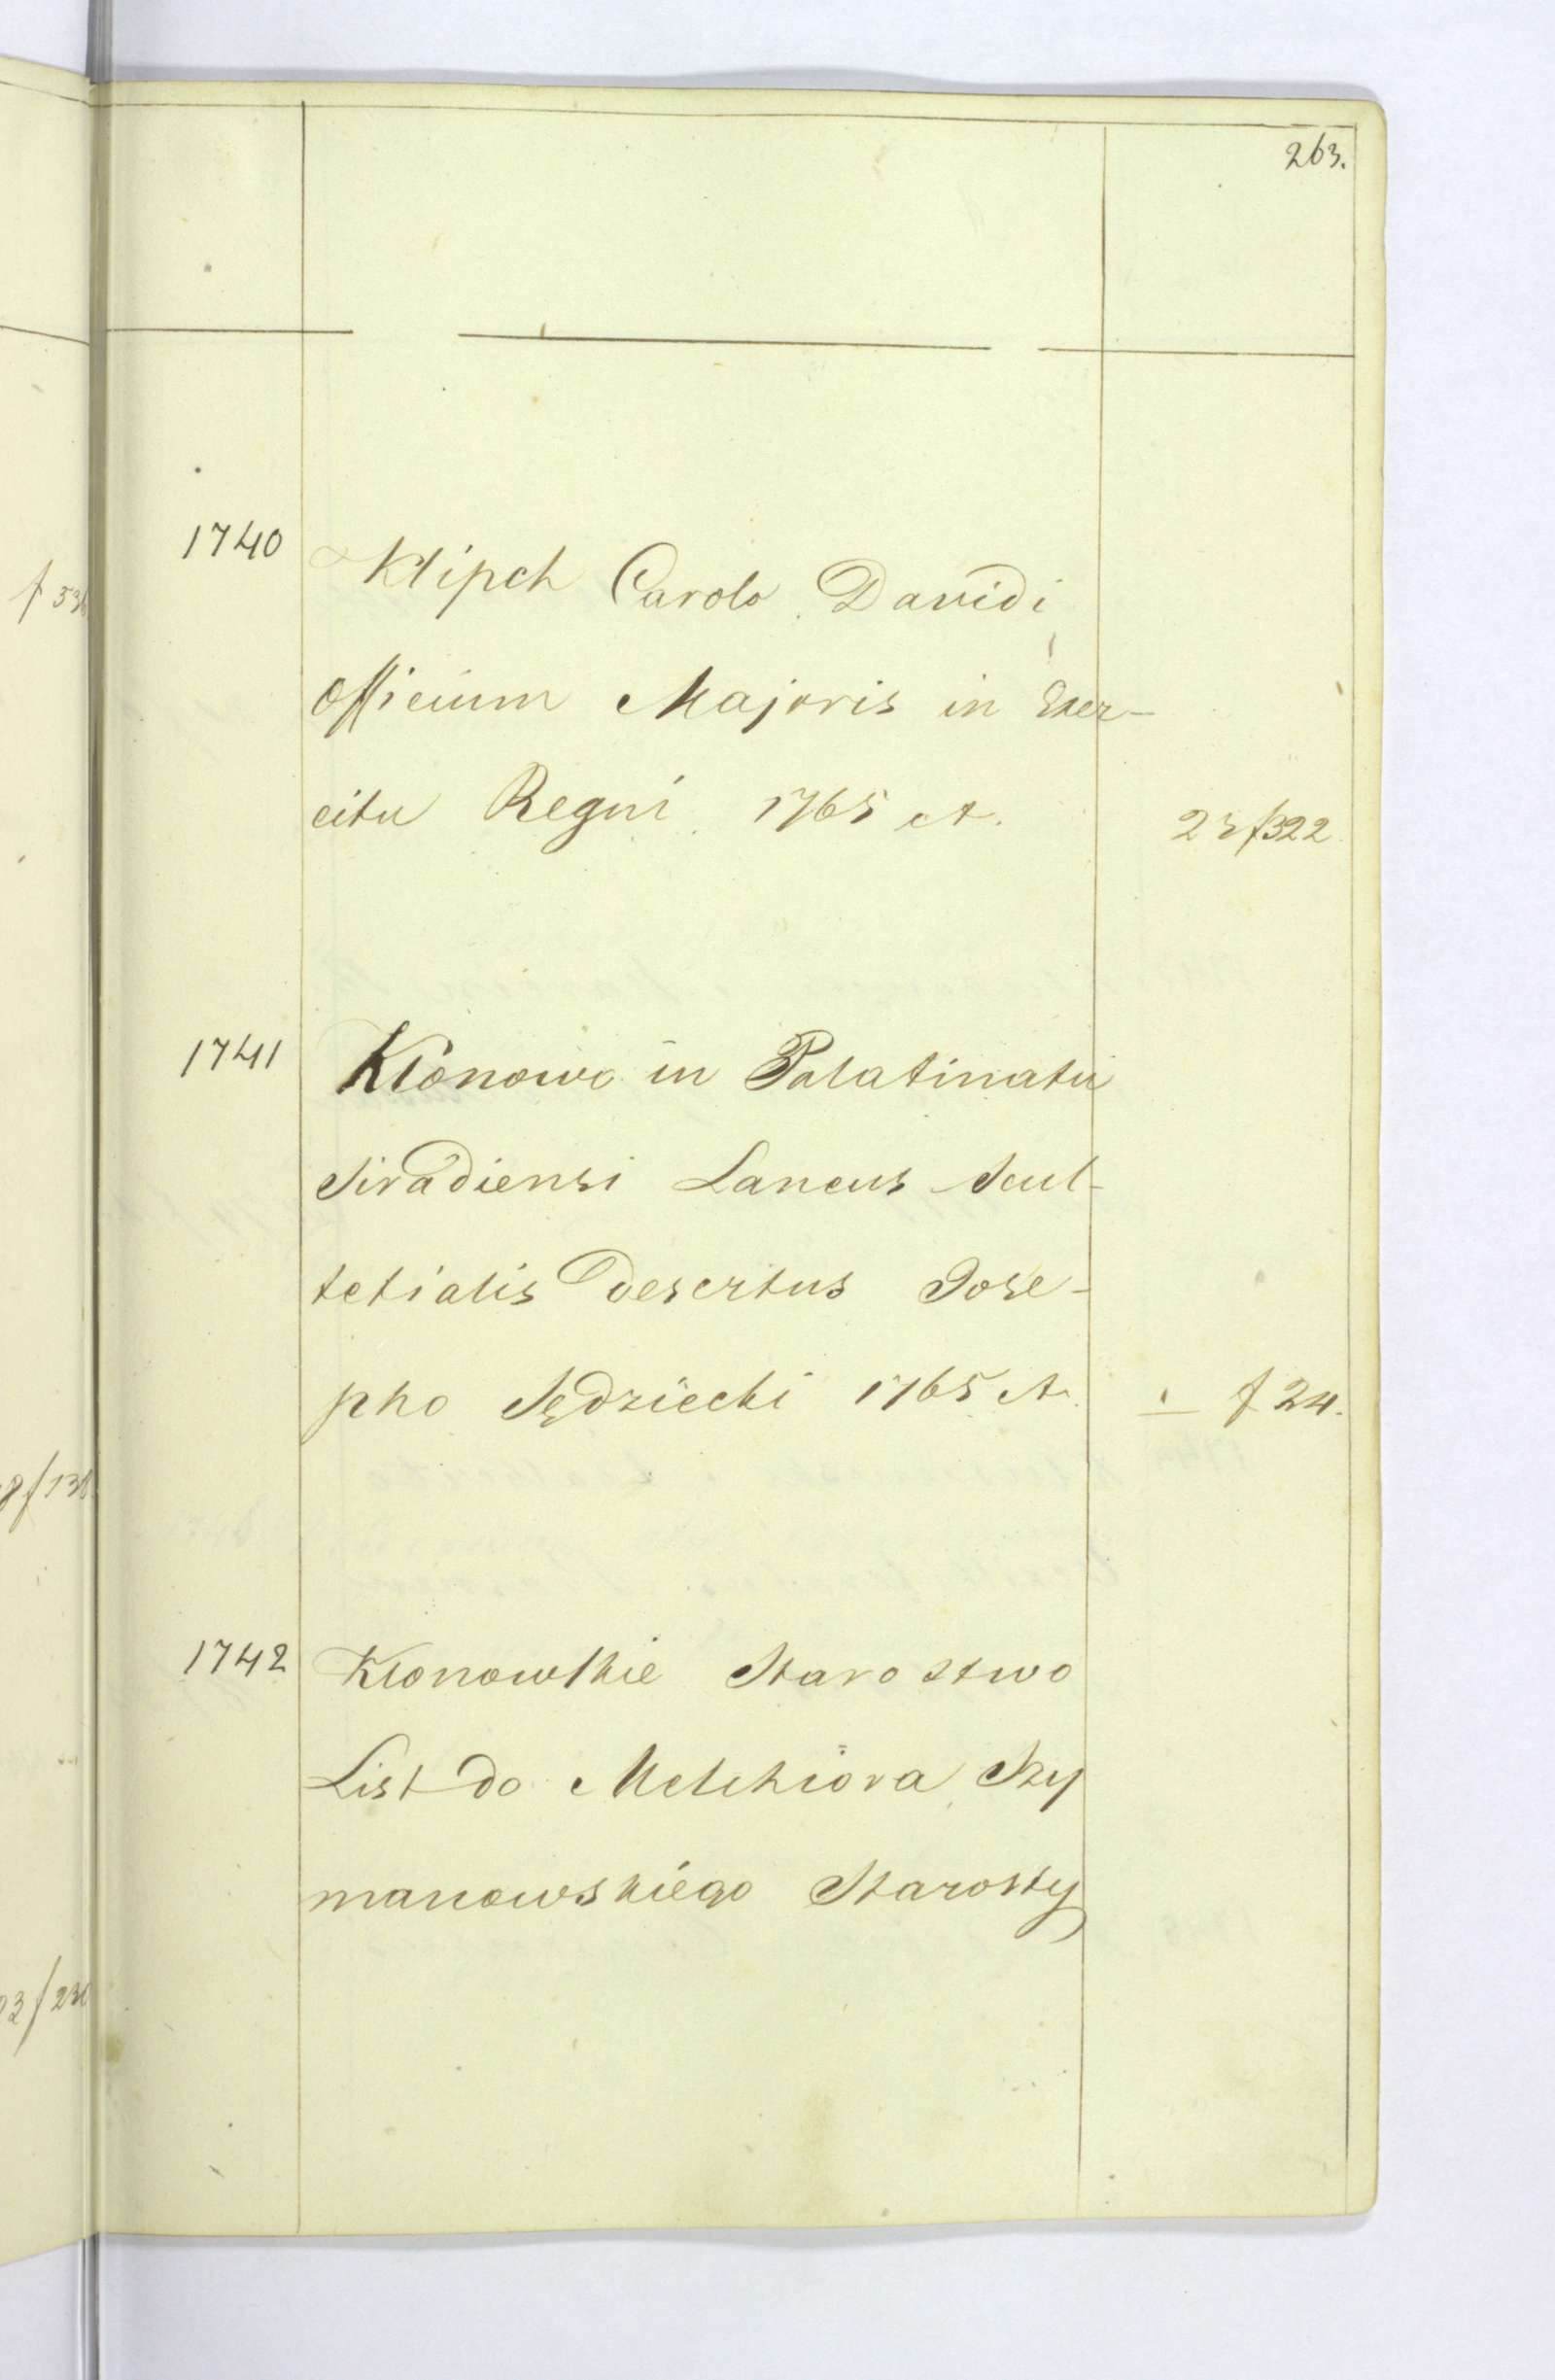 263.
1740 Klipch Carolo Davidi
Officium Majoris in Exer-
citu Regni 1765 A. 25 f 322
1741 Klonowo in Palatinatu
Siradiensi Laneus Scul-
tetialis Desertus Jose-
pho Sędziecki 1765 A. f 24.
1742 Klonowskie Starostwo
List do Melchiora Szy
manowskiego Starosty